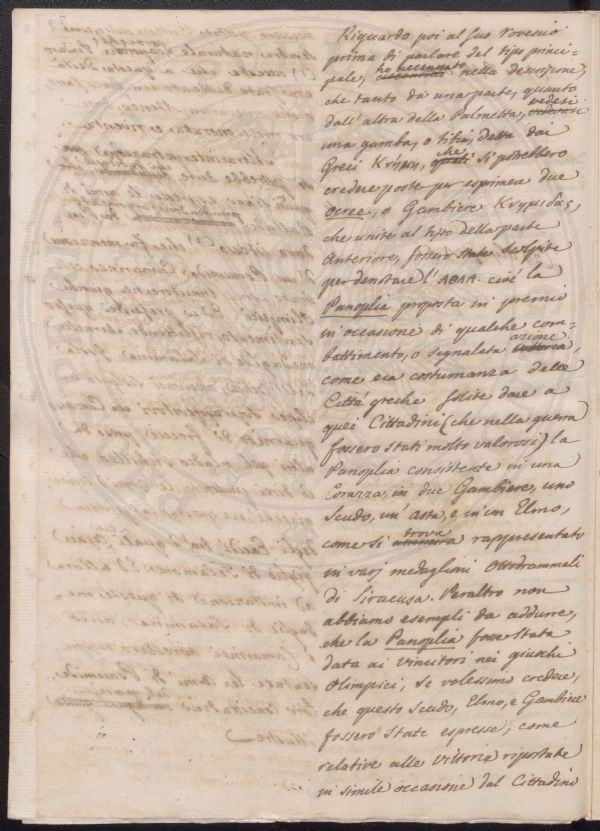 Riguardo poi al suo Rovescio
prima di parlare del tipo princi-
pale, ho accennato nella descrizione,
che tanto da una parte, quanto
dall'altra della Palmetta, vedesi
una gamba, o tibia, detta dai
Greci Κνήμη, che si potrebbero
credere poste per esprimere due
Ocree, o Gambiere Κνημιδας,
che unite al tipo della parte
Anteriore, fossero state scolpite
per denotare l'ΑΘΛΑ. cioè la
Panoplia proposta in premio
in occasione di qualche com-
battimento, o segnalata azione,
come era costumanza delle
Città greche solite dare a
quei Cittadini (che nella guerra
fossero stati molto valorosi) la
Panoplia consistente in una
Corazza, in due Gambiere, uno
Scudo, un'asta, e in un Elmo,
come si trova rappresentato
in varj medaglioni Ottodrammeli
di Siracusa. Peraltro non
abbiamo esempli da addurre,
che la Panoplia fosse stata
data ai vincitori nei giuochi
Olimpici, se volessimo credere,
che questo Scudo, Elmo, e Gambiere
fossero state espresse, come
relative alle vittorie riportate
in simile occasione dal Cittadino